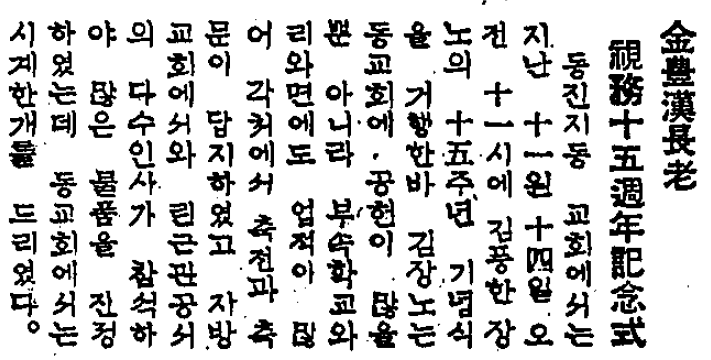 金豊漢長老
視務十五週年記念式
동진지동 교회에서는
지난 十一원 十四일 오
전 十一시에 김풍한 장
노의 十五주년 기념식
을 거행한바 김장노는
동교회에. 공헌이 많을
뿐 아니라 부속학교와
리와면에도 업적이 많
어 각처에서 축전과 축
문이 답지하였고 자방
교회에서와 린근관공서
의 다수인사가 참석하
야 많은 물품을 진정
하였는데 동교회에서는
시계한개를 드리였다。